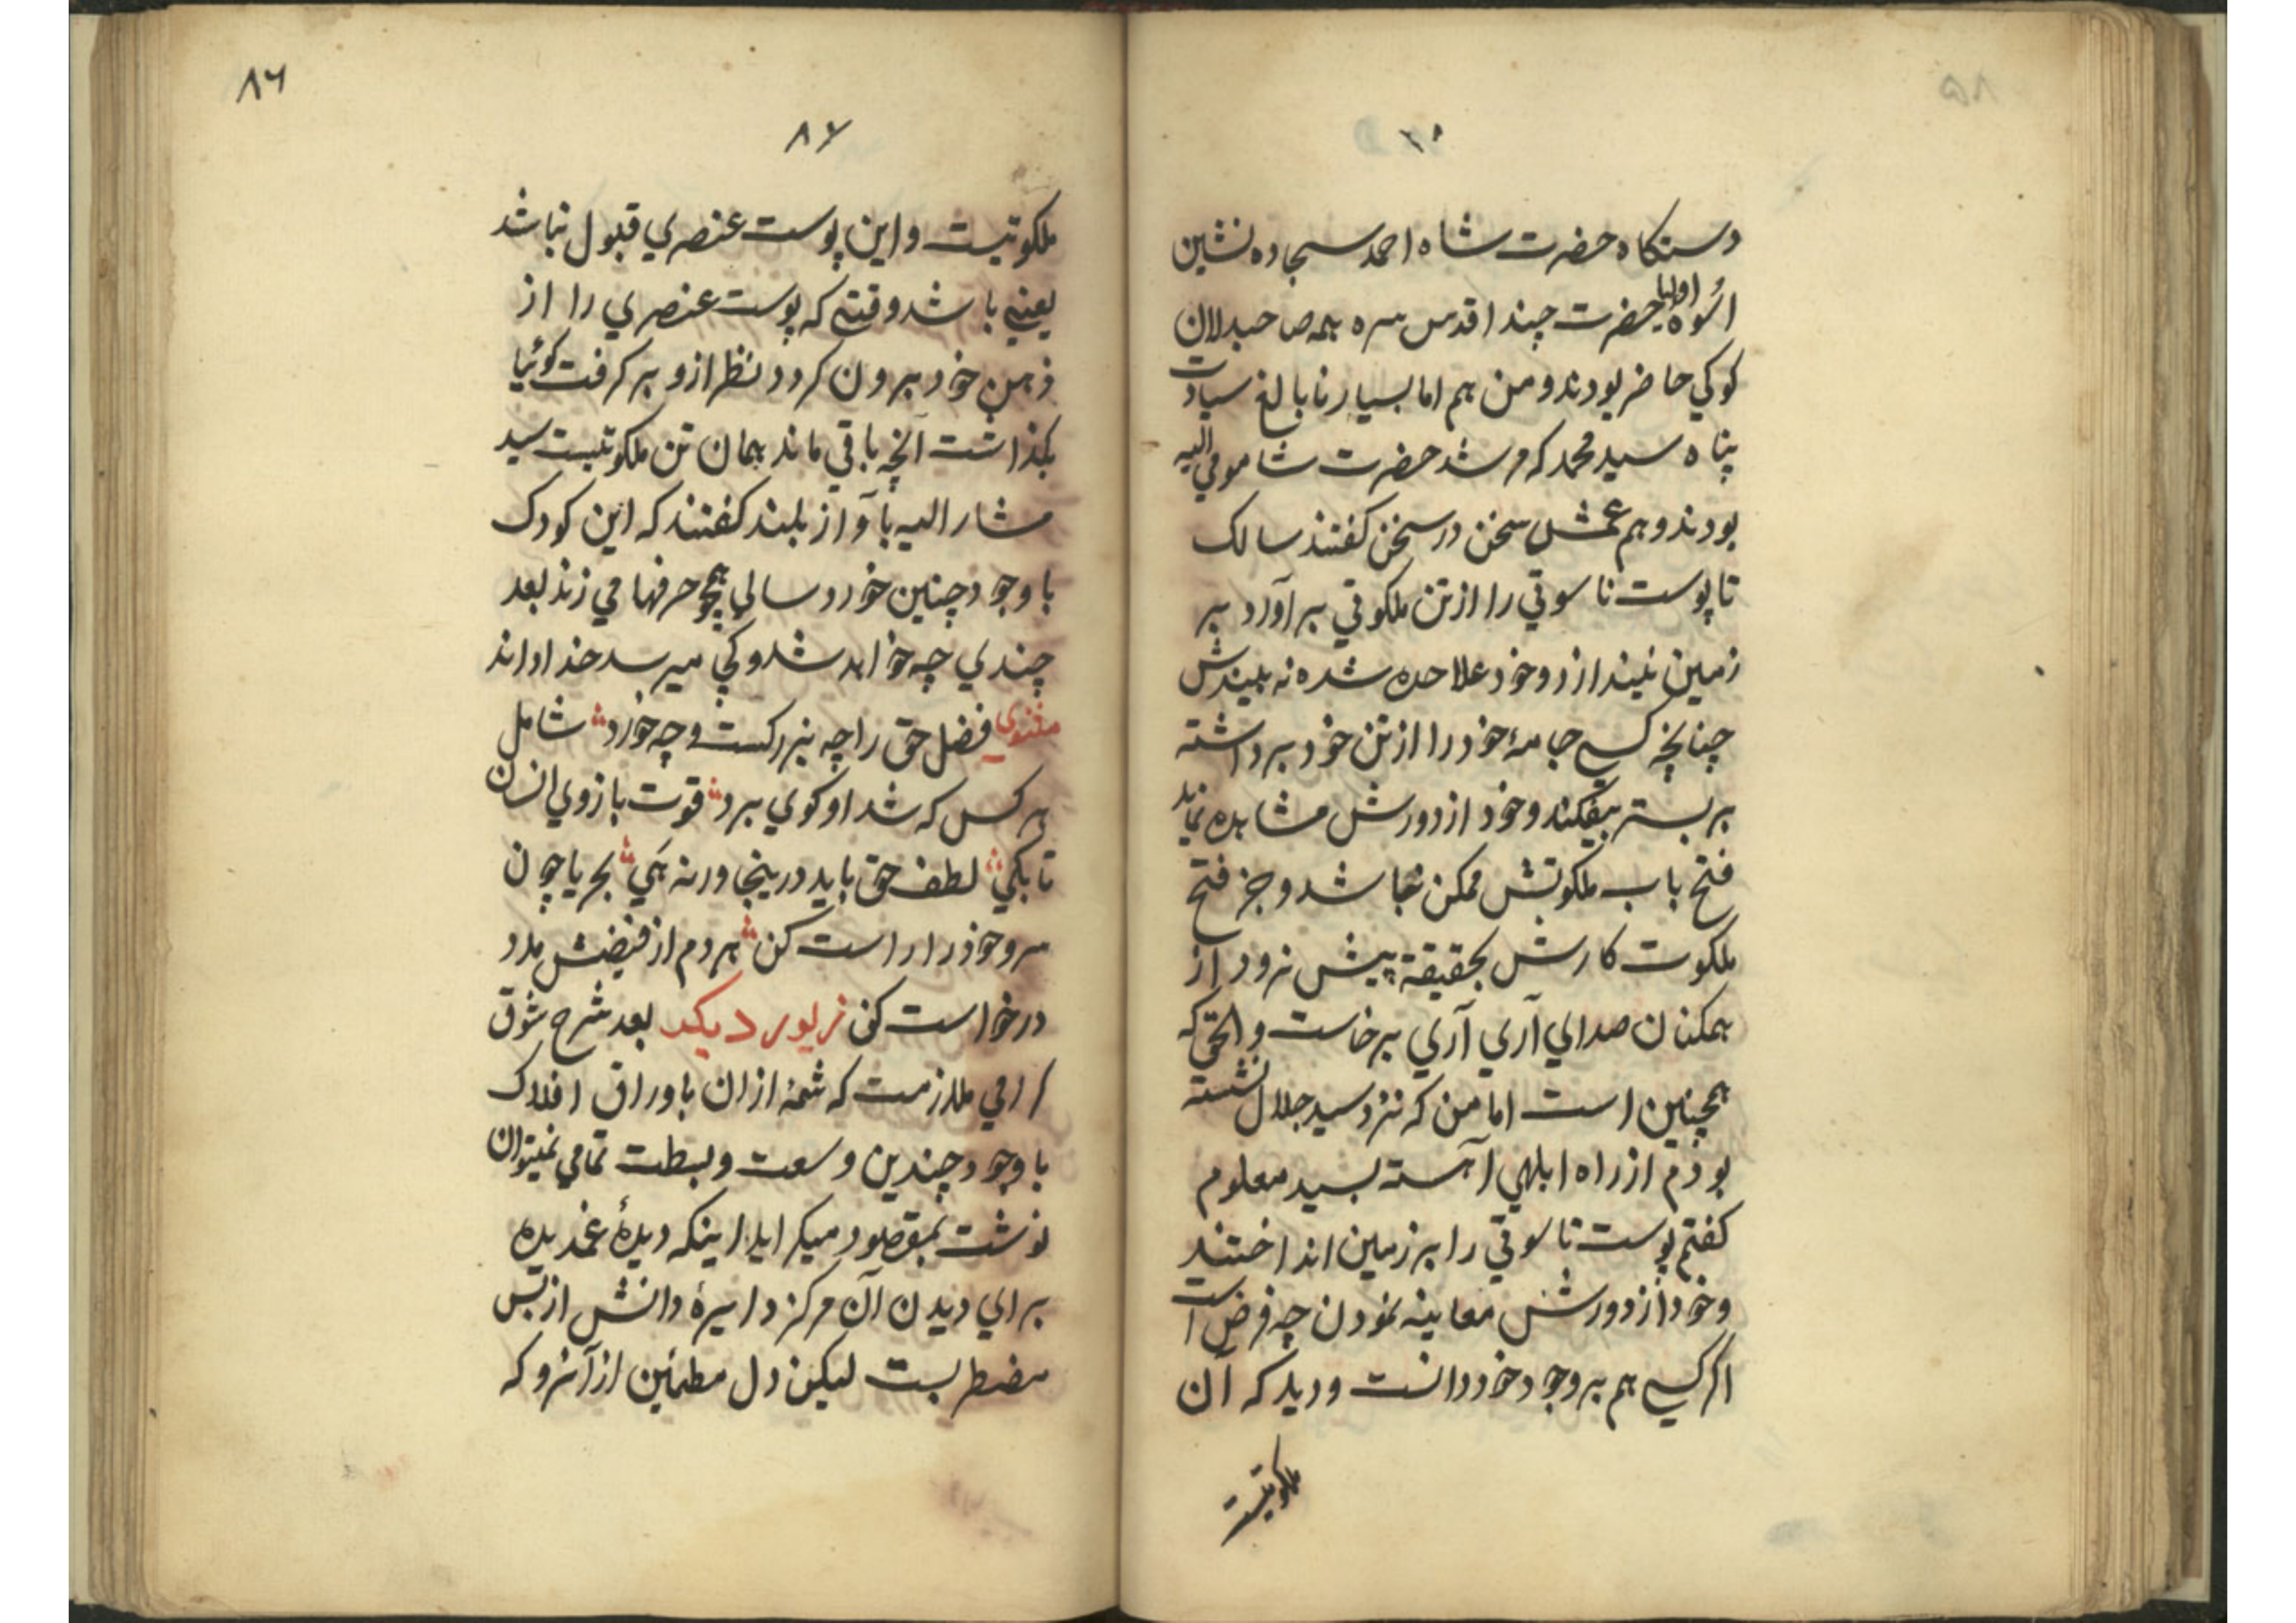 ۸۵
دستکاه حضرت شاه احمد سجاده نشین
اسوه اولیا حضرت چندا قدس سره همه صاحبدلان
کوکي حاضر بودند و من هم اما بسیار نابالغ سیادت
پناه سید محمد که مرشد حضرت شا مومي الیه
بودند و هم عمش سخن در سخن کفتند سالک
تا پوست ناسوتي را از تن ملکوتي برآورد بر
زمین نیندازد و خود علاحده شده نه بیندش
چنانچه کسي جامۀ خود را از تن خود برداشته
بر بستر بیفکند و خود از دورش مشاهده نماید
فتح باب ملکوتش ممکن نباشد و جز فتح
ملکوت کارش بحقیقة پیش نرود از
همکنان صداي آري آري برخاست و الحق که
همچنین است اما من که نزد سید جلال نشسته
بودم از راه ابلهي آهسته بسید معلوم
کفتم پوست ناسوتي را بر زمین انداختند
و خود از دورش معاینه نمودن چه فرض است
اکر کسي هم بر وجود خود دانست و دید که آن
ملکوتیست
۸۶
۸۷
ملکوتیست و این پوست عنصري قبول نباشد
یعني باشد وقتي که پوست عنصري را از
ذهن خود بیرون کرد و نظر ازو بر کرفت کوئیا
بکذاشت آنچه باقي ماند همان تن ملکوتیست سید
مشار الیه بآواز بلند کفتند که این کودک
با وجود چنین خورد سالي همچو حرفها مي زند بعد
چندي چه خواهد شد و کجي میرسد خدا داند
مثنوی فضل حق را چه بزرکست و چه خورد شامل
هر کس که شد او کوي برد قوت بازوي انسان
تا بکي لطف حق باید درینجا ورنه هي بحریا چون
سرو خود را راست کن هر دم از فیضش مدد
درخواست کن زیور دیکر بعد شرح شوق
کرامي ملازمت که شمۀ از ان باوراق افلاک
با وجود چندین وسعت و بسطت تمامي نمیتوان
نوشت بمقصود میکراید اینکه دیدۀ غمدیده
براي دیدن آن مرکز دایرۀ دانش از بس
مضطربست لیکن دل مطمئین از آنرو که